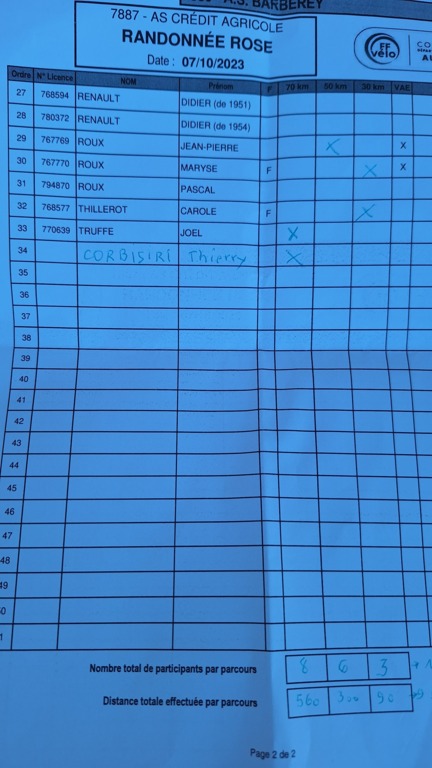 A.S. BARBEREY
7887 - AS CRÉDIT AGRICOLE
RANDONNÉE ROSE
Date : 07/10/2023
FF
vélo
Ordre N° Licence NOM Prénom F 70 km 50 km 30 km VAE
27 768594 RENAULT DIDIER (de 1951)
28 780372 RENAULT DIDIER (de 1954)
29 767769 ROUX JEAN-PIERRE X X
30 767770 ROUX MARYSE F X X
31 794870 ROUX PASCAL
32 768577 THILLEROT CAROLE F X
33 770639 TRUFFE JOEL X
34 CORBISIRI Thierry X
35
36
37
38
39
40
41
42
43
44
45
46
47
48
49
Nombre total de participants par parcours 8 6 3
Distance totale effectuée par parcours 560 300 90
Page 2 de 2